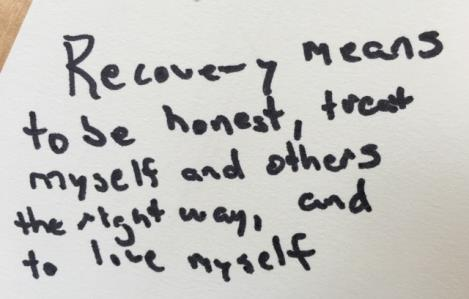 Recovery means
to be honest, treat
myself and others
the right way, and
to live myself